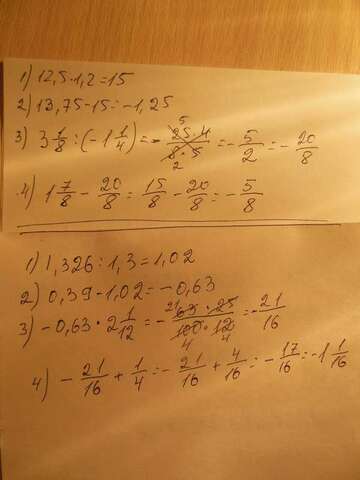 1) 12,5·1,2=15
2) 13,75-15=-1,25
3) 3 1/8 : (-1 1/4) = - 25·4/8·5 = - 5/2 = - 20/8
4) 1 7/8 - 20/8 = 15/8 - 20/8 = - 5/8
1) 1,326:1,3=1,02
2) 0,39-1,02=-0,63
3) -0,63·2 1/12 = - 63·25/100·12 = - 21/16
4) - 21/16 + 1/4 = - 21/16 + 4/16 = - 17/16 = -1 1/16